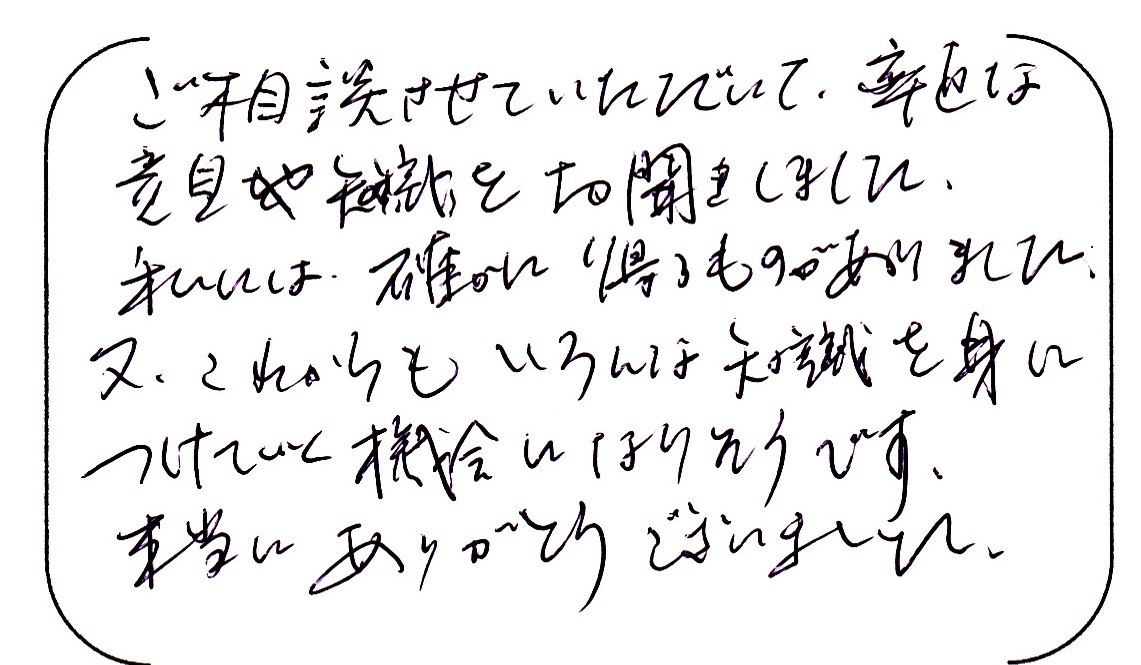 ご相談させていただいて、率直な
意見や知識をお聞きしました。
私には、確かに得るものがありました。
又、これからもいろんな知識を身に
つけていく機会になりそうです。
本当にありがとうございました。